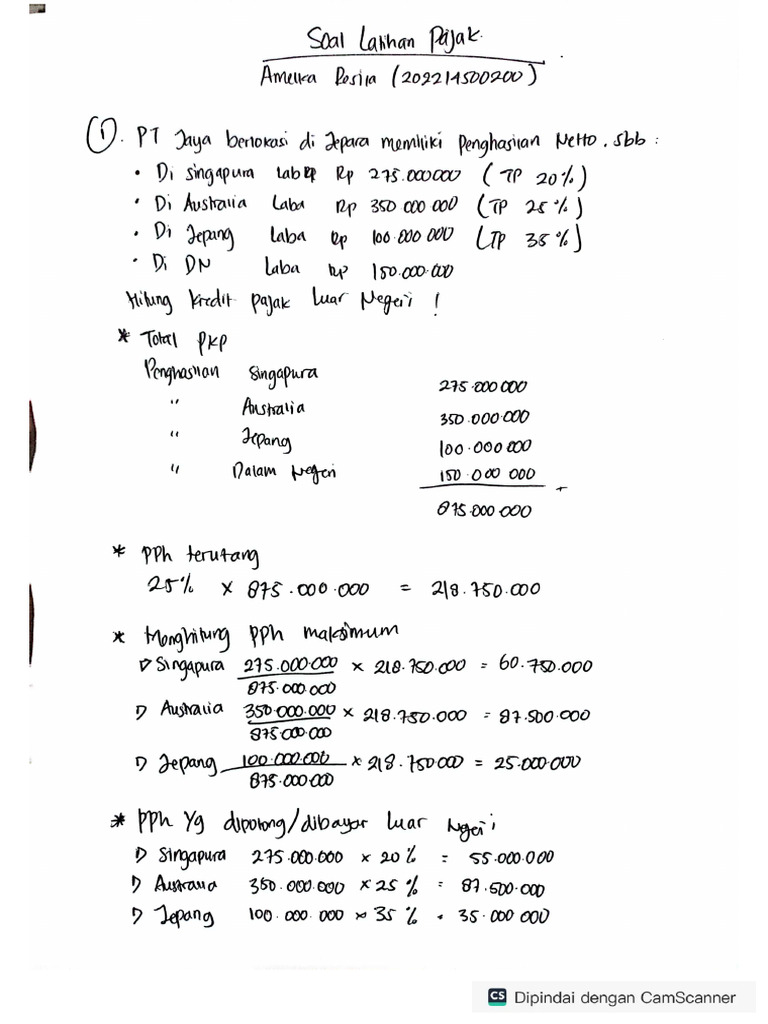 Soal Latihan Pajak
Amelia Rosira (202214500200)
1. PT Jaya berlokasi di Jepara memiliki Penghasilan Netto, sbb :
• Di Singapura Laba Rp 275.000000 (TP 20%)
• Di Australia Laba Rp 350 000 000 (TP 25%)
• Di Jepang Laba Rp 100.000 000 (TP 35%)
• Di DN Laba Rp 150.000.000
Hitung Kredit Pajak Luar Negeri !
* Total PKP
Penghasilan Singapura 275.000 000
" Australia 350.000.000
" Jepang 100.000 000
" Dalam Negeri 150.000 000 +
875.000 000
* PPh terutang
25% x 875.000.000 = 218.750.000
* Menghitung PPh maksimum
▷ Singapura 275.000.000 x 218.750.000 = 60.750.000
875.000.000
▷ Australia 350.000.000 x 218.750.000 = 87.500.000
875.000.000
▷ Jepang 100.000.000 x 218.750000 = 25.000.000
875.000.000
* PPh Yg dipotong/dibayar luar Negeri
▷ Singapura 275.000.000 x 20% = 55.000.000
▷ Australia 350.000.000 x 25% = 87.500.000
▷ Jepang 100.000.000 x 35% = 35.000 000
CS Dipindai dengan CamScanner